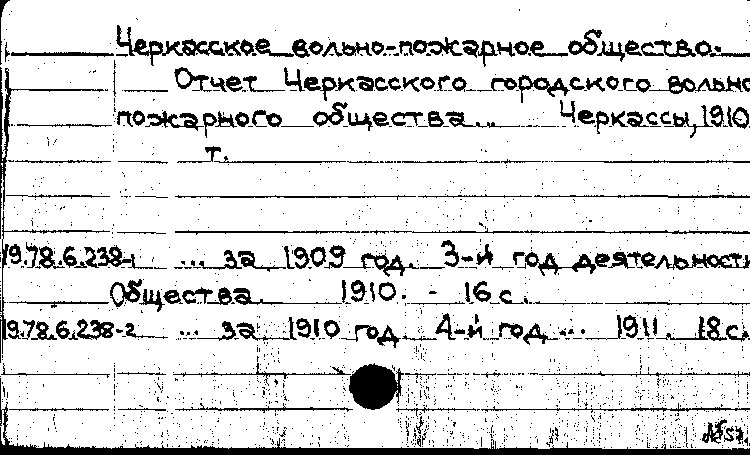 Черкасское вольно-пожарное общество.
Отчет Черкасского городского вольно
пожарного общества... Черкассы, 1910
т.
19.78.6.238-1 ... за 1909 год. 3-й год деятельности
Общества. 1910. - 16 с.
19.78.6.238-2 ... за 1910 год. 4-й год ... 1911. 18 с.